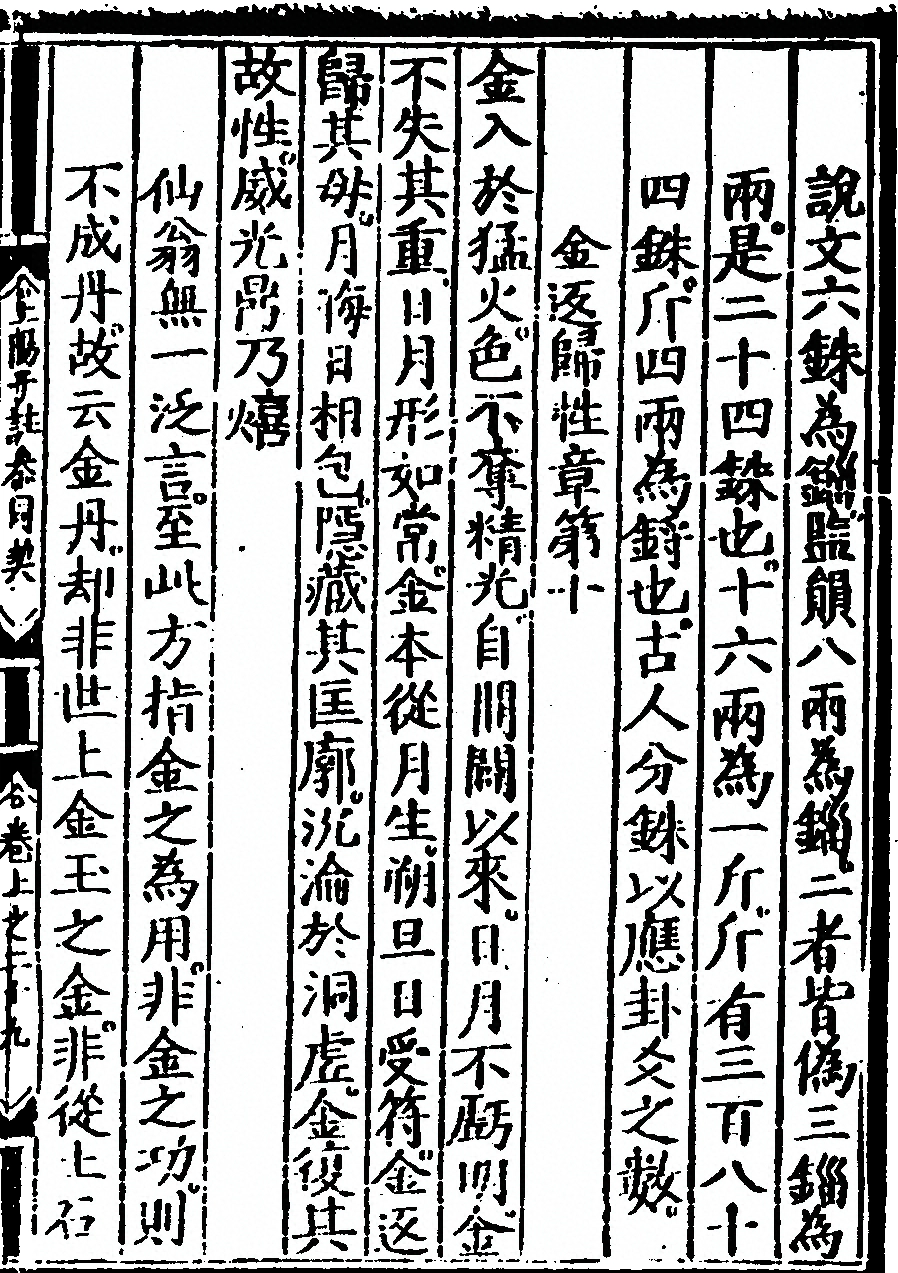 說文六銖為錙監韻八兩為錙二者皆偽三錙為
兩是二十四銖也十六兩為一斤斤有三百八十
四銖斤四兩為鋝也古人分銖以應卦爻之數
金返歸性章第十
金入於猛火色不奪精光自開闢以來日月不虧明金
不失其重日月形如常金本從月生朔旦日受符金返
歸其母月晦日相包隱藏其匡廓沉淪於洞虛金復其
故性威光鼎乃熺
仙翁無一泛言至此方指金之為用非金之功則
不成丹故云金丹却非世上金玉之金非從土石
上陽子註參同契
卷上之二十九